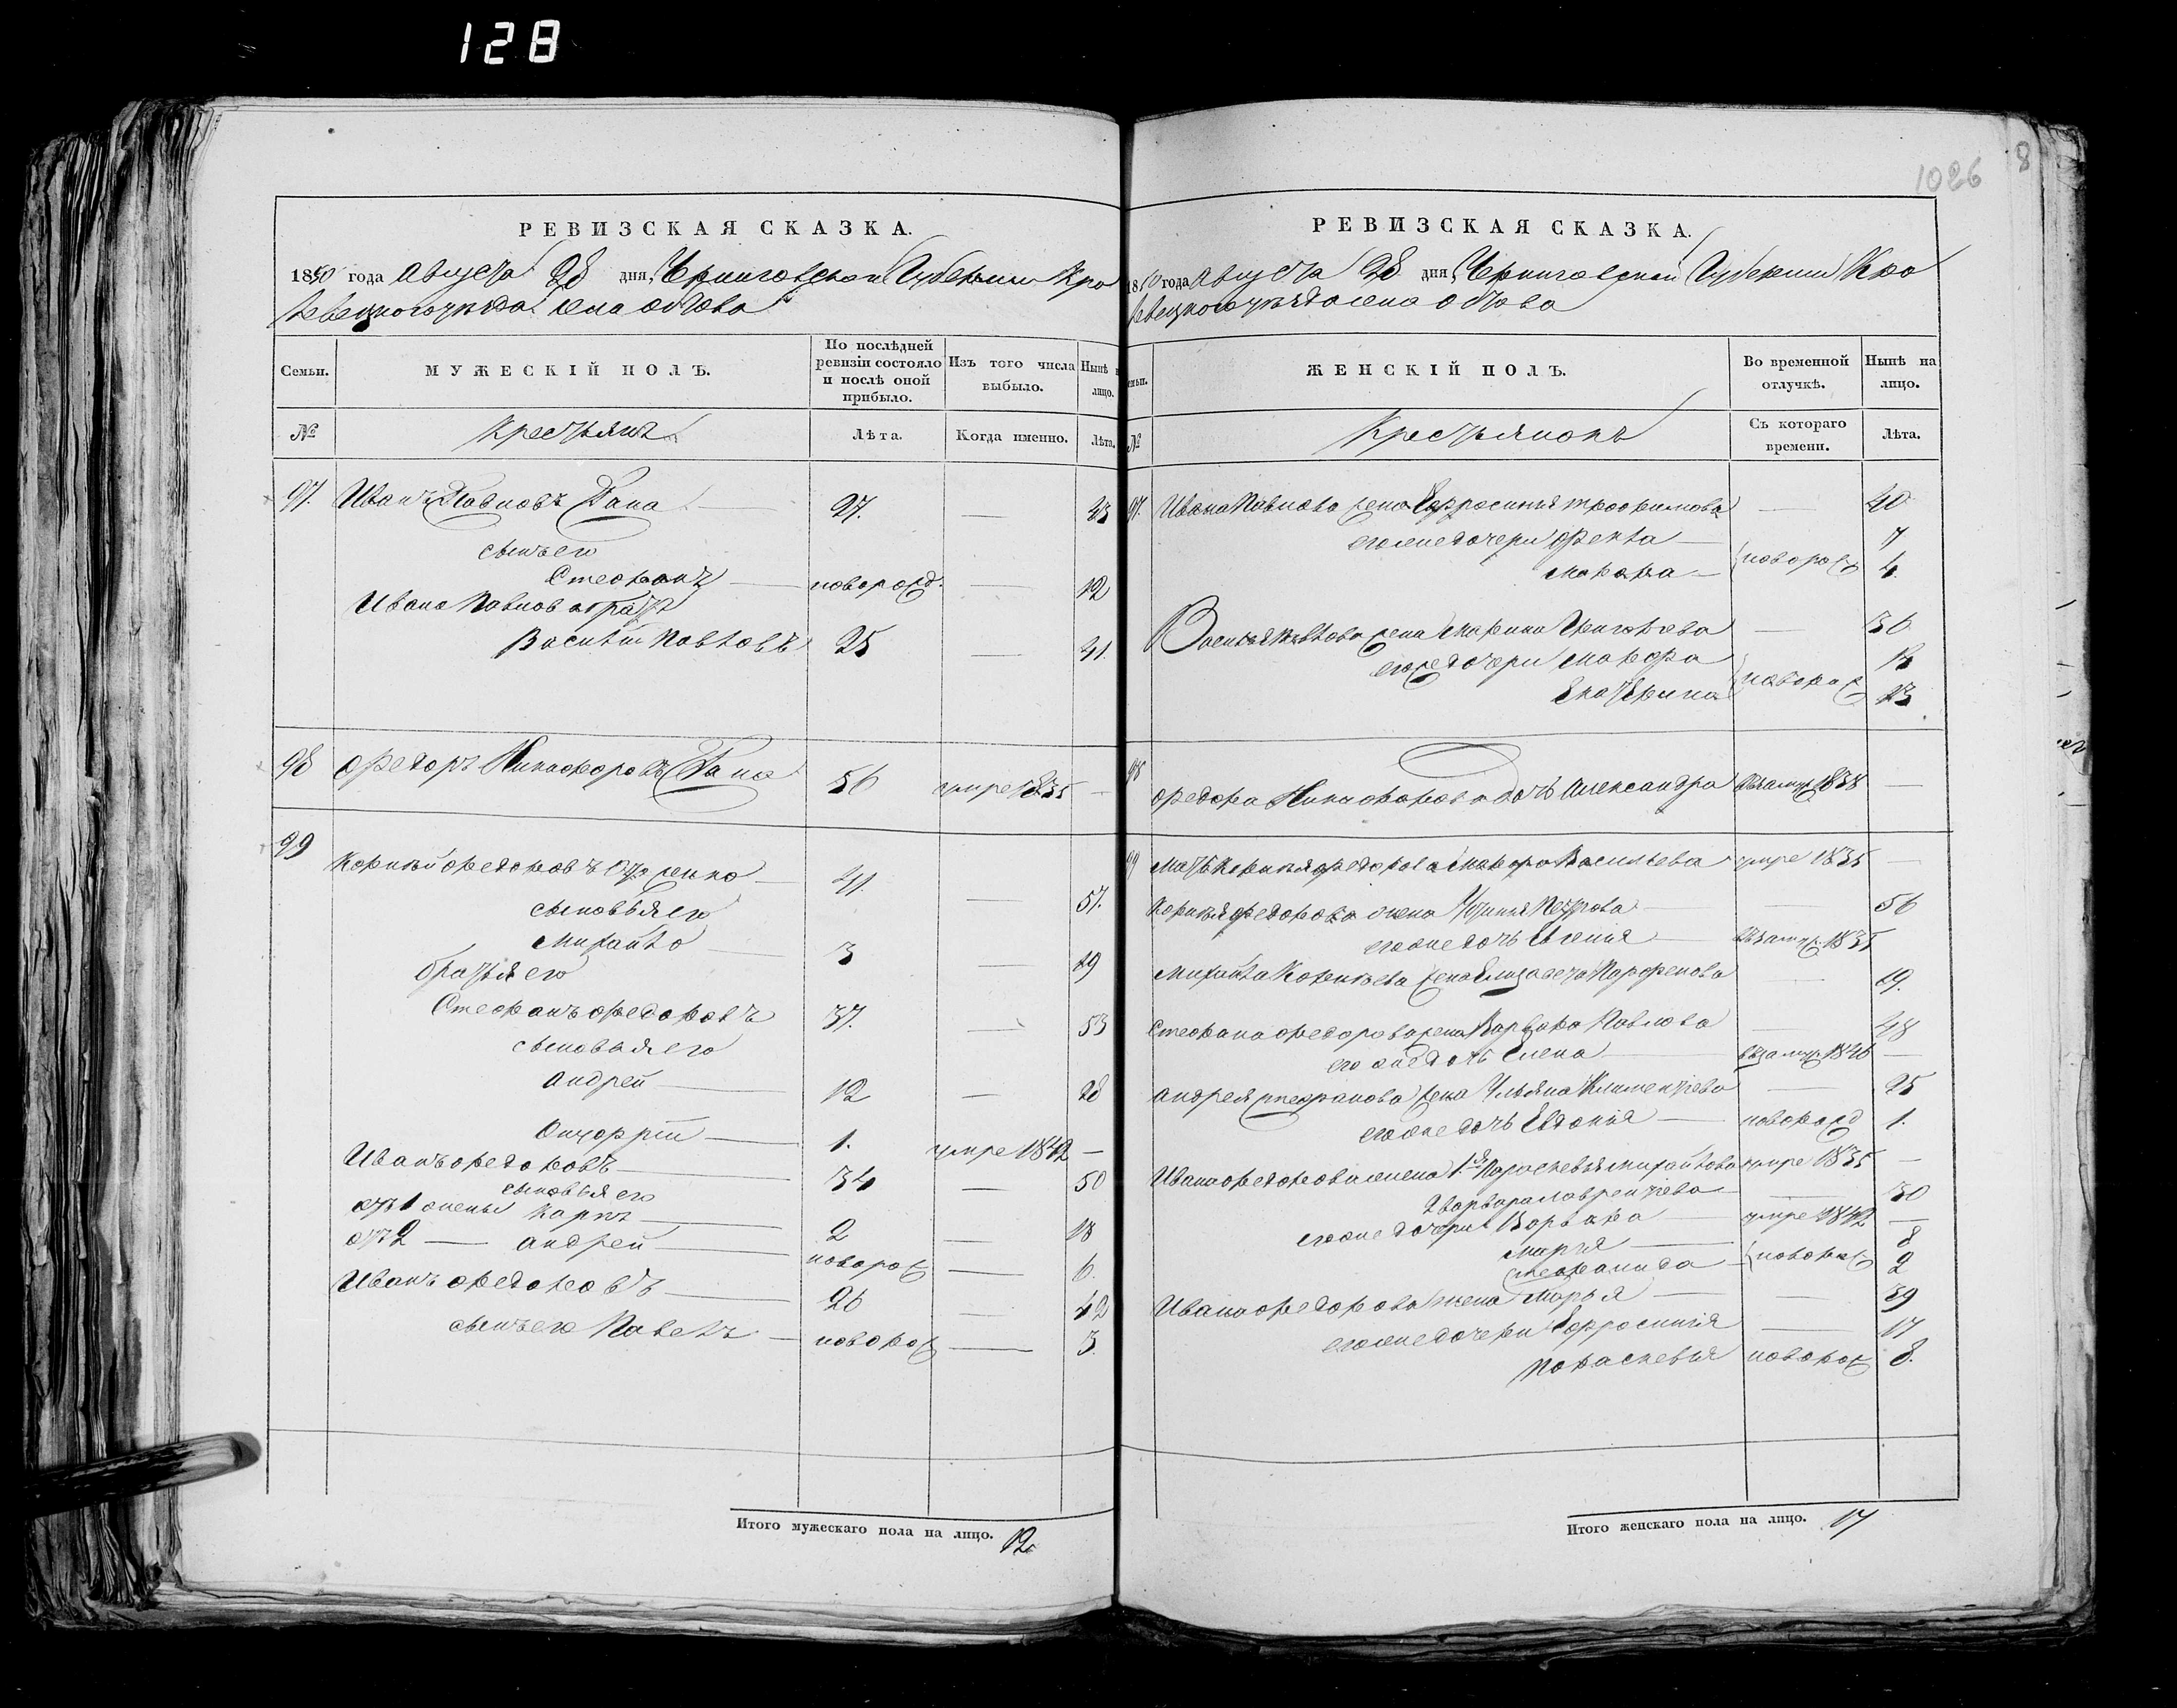 128
1026 8
РЕВИЗСКАЯ СКАЗКА.
1850 года Августа 28 дня, Черниговской Губернии Кро
левецкого уѣзда села Обтова
Семьи. МУЖЕСКІЙ ПОЛЪ. По послѣдней ревизіи состояло и послѣ оной прибыло. Изъ того числа выбыло. Нынѣ н лицо.
№ Крестьянъ Лѣта. Когда именно. Лѣта.
97. Иванъ Павловъ 27. — 43
сынъ его
Стефанъ — новорожд. — 12
Ивана Павлова братъ
Василій Павловъ 25 — 41.
98 Федоръ Никифоровъ 56 умре 1835 —
99 Корнѣй Федоровъ 41. — 57.
сыновья его
Михайло — 3 — 19
братья его
Стефанъ Федоровъ 37. — 53
сыновья его
Андрей — 12 — 28
Онуфрій — 1. умре 1842 —
Иванъ Федоровъ — 34 — 50
сыновья его
отъ 1 жены Карпъ — 2 — 18
отъ 2 — Андрей — новорож — 6.
Иванъ Федоровъ — 26 — 42
сынъ его Павелъ — новорож — 3.
Итого мужескаго пола на лицо. 12
РЕВИЗСКАЯ СКАЗКА.
1850 года Августа 28 дня, Черниговской Губернии Кро
левецкого уѣзда села Обтова
емьи. ЖЕНСКІЙ ПОЛЪ. Во временной отлучкѣ. Нынѣ на лицо.
№ Крестьянокъ Съ котораго времени. Лѣта.
97. Ивана Павлова жена Ефросинья Трофимова — 40
его же дочери Фекла — 7
Макара — новорож 4.
Василья Павлова жена Марина Григорьева — 36
его же дочери Мавра
Екатерина новорож 13
98 Федора Никифорова дочь Александра въ замуж 1838 —
99 Мать Корнѣя Федорова Мавра Васильева умре 1835 —
Корнѣя Федорова жена Устинья Петрова — 56
его же дочь Евгенія — въ замуж 1835
Михайла Корнѣева жена Елизавета Парфенова — 19.
Стефана Федорова жена Варвара Павлова — 48
его же дочь Елена — въ замуж 1846 —
Андрея Стефанова жена Ульяна Климентьева — 25
его же дочь Евдокія — новорожд 1.
Ивана Федорова жена 1я Парасковья Михайлова умре 1835 —
2 Варвара Лаврентьева — 30
его же дочери Варвара — умре 1842 —
Марья — 8
Степанида — новорож 2
Ивана Федорова жена Марья — — 39
его же дочери Ефросинія — 17
Парасковья новорож 8.
Итого женскаго пола на лицо. 17